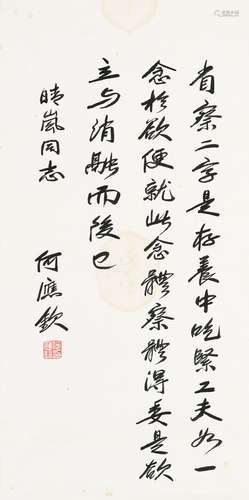 省察二字是存養中吃緊工夫如一
念於欲便就此念體察體得委是欲
立与消融而後已
晴嵐同志
何應欽